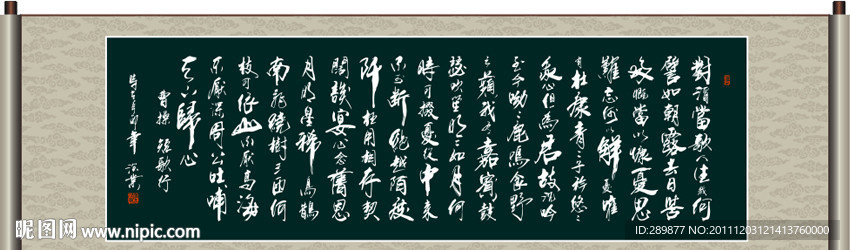 對酒當歌人生幾何
譬如朝露去日苦
多慨當以慷憂思
難忘何以解憂唯
有杜康青〻子衿悠〻
我心但為君故沉吟
至今呦〻鹿鳴食野
之蘋我有嘉賓鼓
瑟吹笙明〻如月何
時可掇憂從中來
不可斷絕越陌度
阡枉用相存契
闊談宴心念舊恩
月明星稀烏鵲
南飛繞樹三匝何
枝可依山不厭高海
不厭深周公吐哺
天下歸心
曹操短歌行
昵图网 www.nipic.com
ID:289877 NO:20111203121413760000